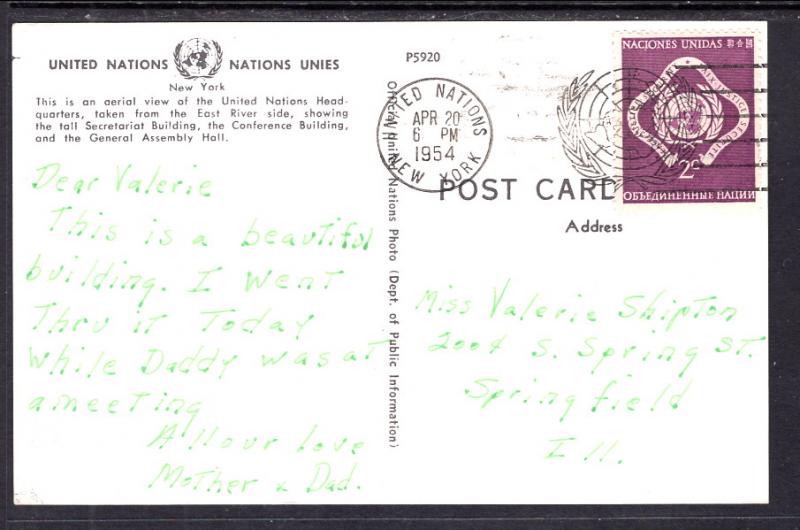 UNITED NATIONS NATIONS UNIES
New York
This is an aerial view of the United Nations Head-
quarters, taken from the East River side, showing
the tall Secretariat Building, the Conference Building,
and the General Assembly Hall.
Dear Valerie
This is a beautiful
building. I went
Thru it Today
while Daddy was at
a meeting
All our love
Mother & Dad.
Official United Nations Photo (Dept. of Public Information)
P5920
UNITED NATIONS
APR 20
6 PM
1954
NEW YORK
NACIONES UNIDAS
2c
ОБЪЕДИНЕННЫЕ НАЦИИ
POST CARD
Address
Miss Valerie Shipton
2004 S. Spring ST.
Springfield
Ill.